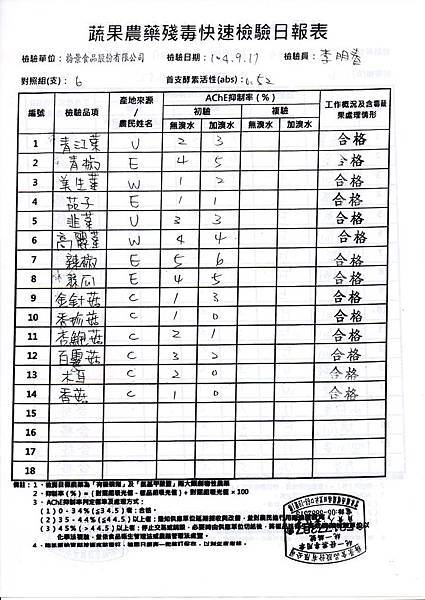 蔬果農藥殘毒快速檢驗日報表
檢驗單位：裕景食品股份有限公司 檢驗日期：104.9.17 檢驗員：李明
對照組(支)：6 首支酵素活性(abs)：0.52
編號 檢驗品項 產地來源/農民姓名 AChE抑制率(%) 工作概況及含毒蔬果處理情形
初驗 複驗
無溴水 加溴水 無溴水 加溴水
1 青江菜 U 2 3 合格
2 青椒 E 4 5 合格
3 美生菜 W 1 2 合格
4 茄子 E 1 1 合格
5 韭菜 U 3 3 合格
6 高麗菜 W 4 4 合格
7 辣椒 E 5 6 合格
8 絲瓜 E 4 5 合格
9 金針菇 C 1 3 合格
10 秀珍菇 C 1 0 合格
11 杏鮑菇 C 2 1 合格
12 百靈菇 C 3 2 合格
13 木耳 C 2 0 合格
14 香菇 C 1 0 合格
15
16
17
18
備註：1、檢驗目標農藥為「有機磷劑」及「氨基甲酸鹽」兩大類劇毒性農藥
2、抑制率(%)=(對照組吸光值-樣品組吸光值)÷對照組吸光值×100
3、AChE抑制率判定標準及處理方式：
(1) 0-34%(≦34.5)者：合格。
(2) 35-44%(≦44.5)以上者：通知供應單位延期採收與改善，並對農民進行用藥
(3) 45%(>44.5)以上者：停止交易或銷毀，必要時由供應單位切結後